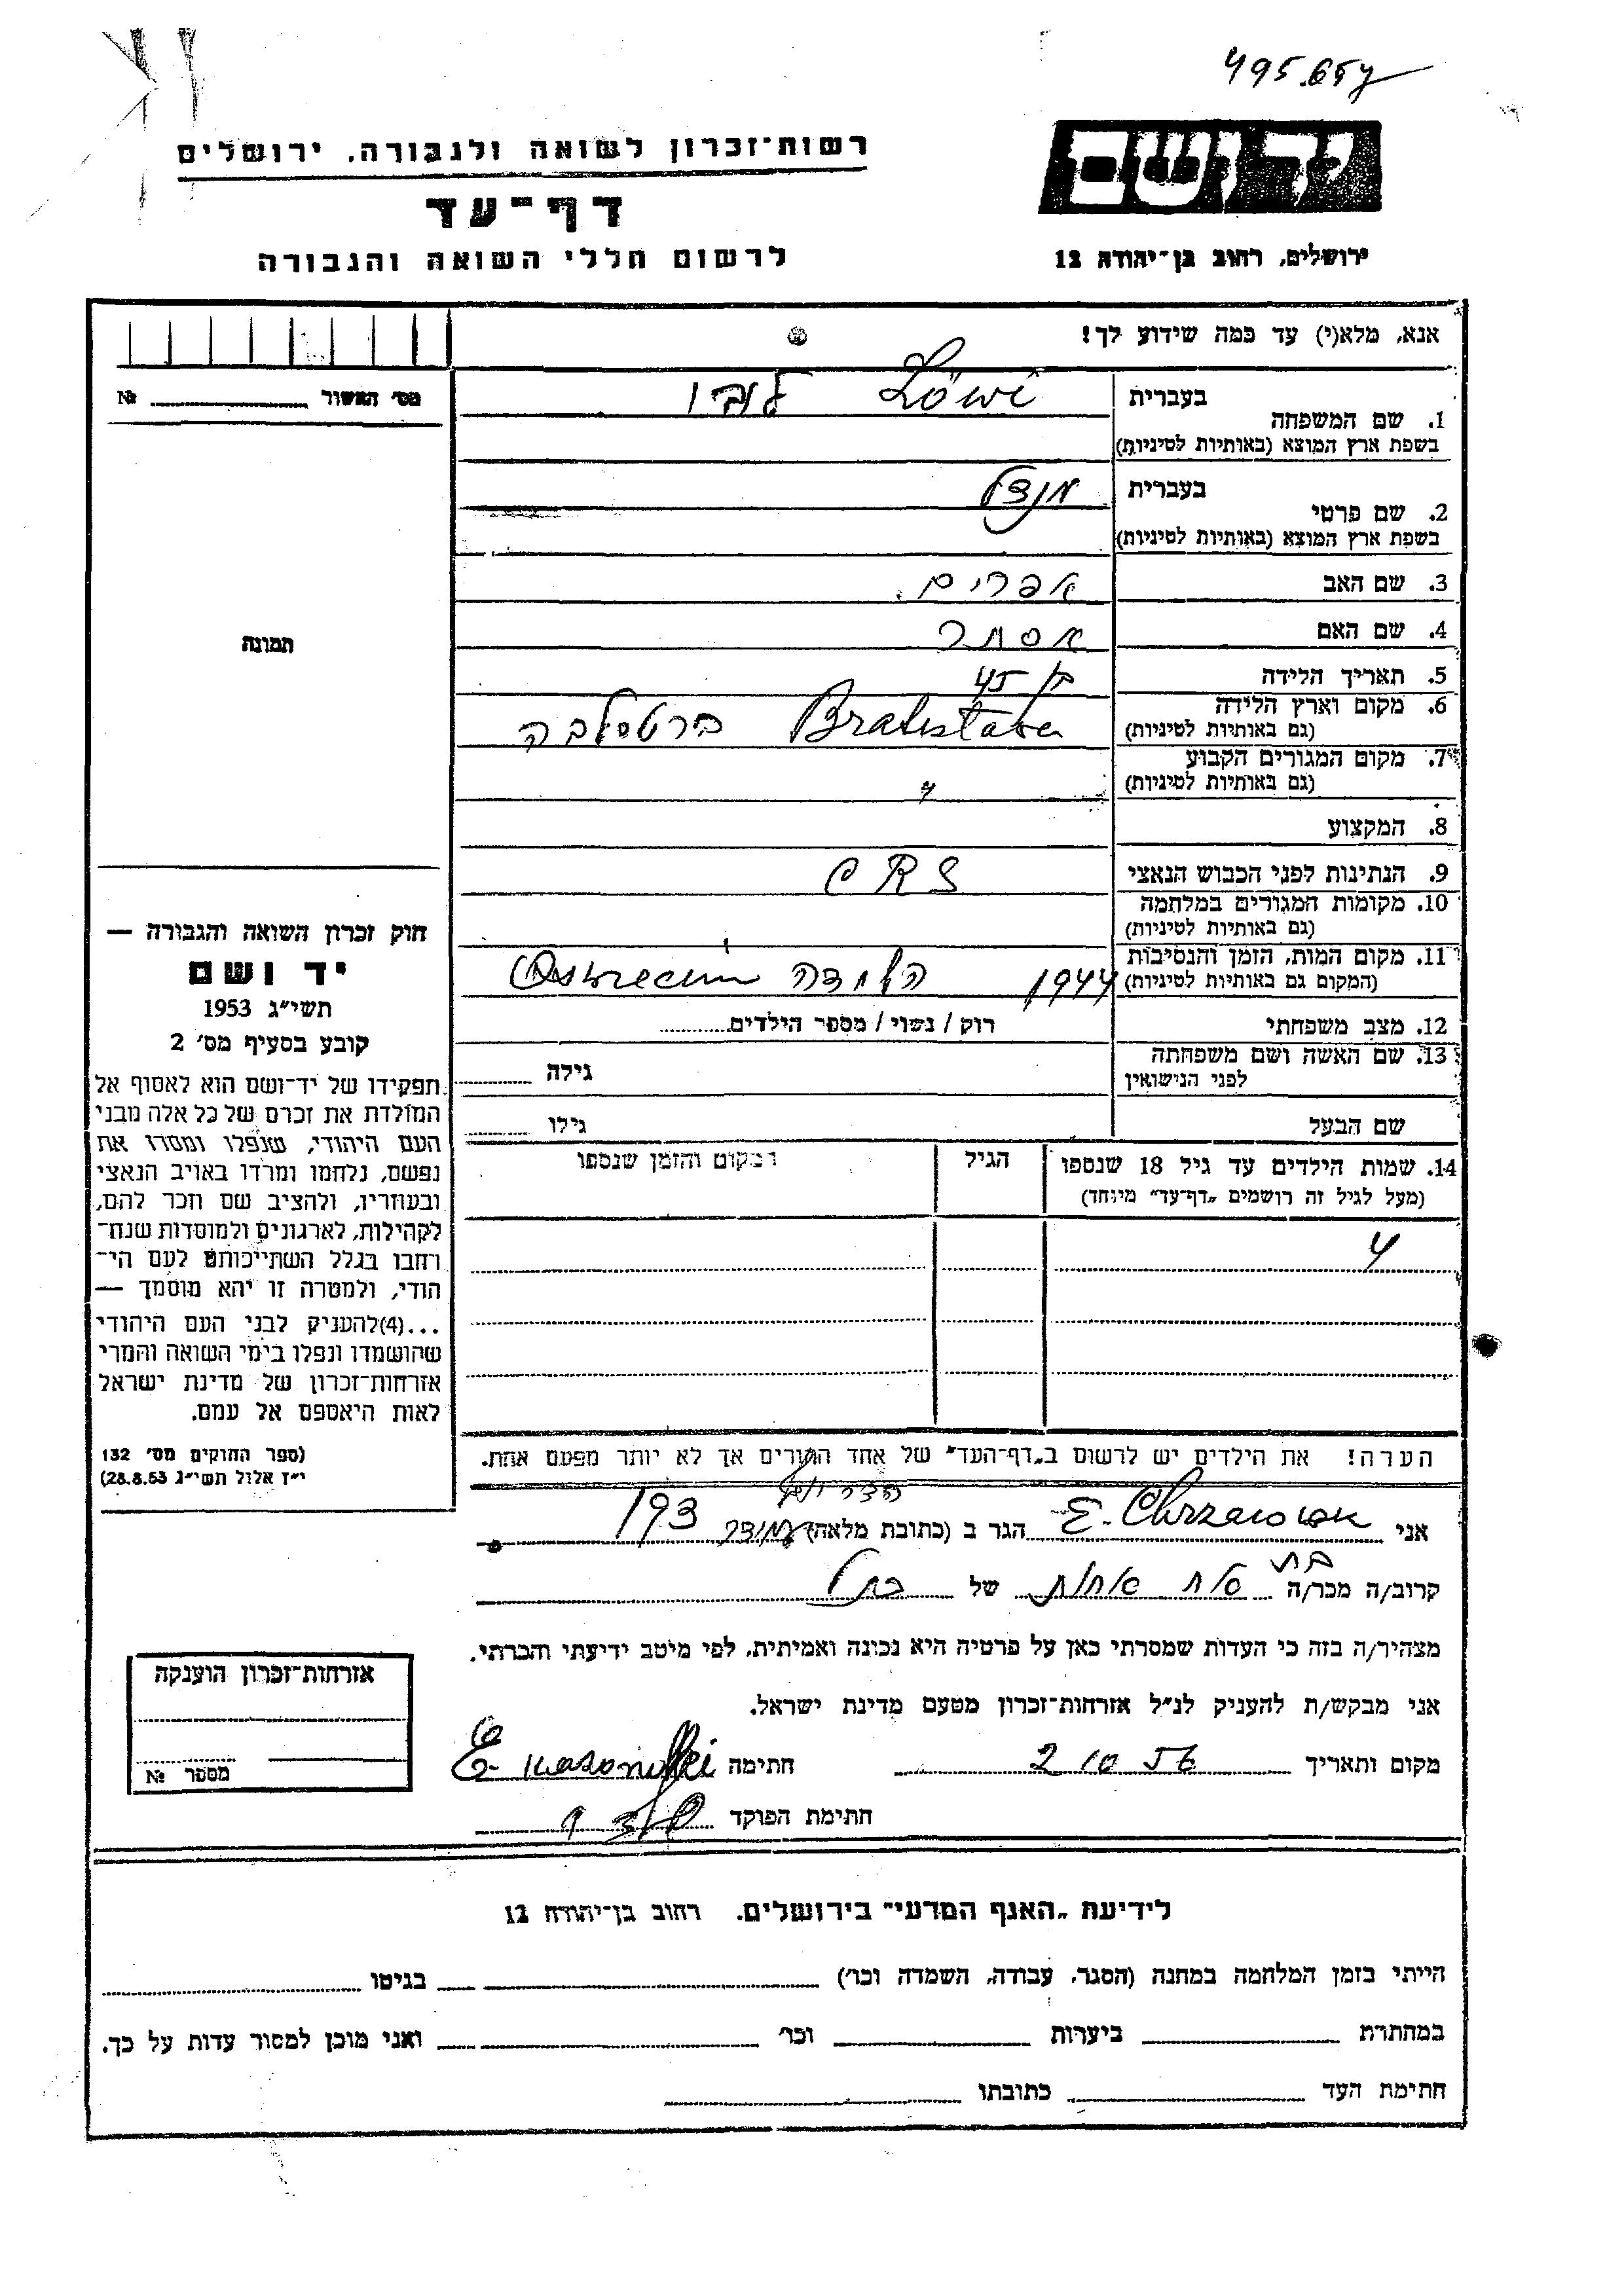 495.657
רשות־זכרון לשואה ולגבורה, ירושלים
יד ושם
דף־עד
לרשום חללי השואה והגבורה
ירושלים, רחוב בן־יהודה 12
אנא, מלא(י) עד כמה שידוע לך!
מס׳ האשור № 
1. שם המשפחה
בעברית Löwi לובי
בשפת ארץ המוצא (באותיות לטיניות)
2. שם פרטי
בעברית מנדל
בשפת ארץ המוצא (באותיות לטיניות)
3. שם האב אפרים.
4. שם האם אסתר
תמונה
5. תאריך הלידה בן 45
6. מקום וארץ הלידה Bratislava ברטסלבה
(גם באותיות לטיניות)
7. מקום המגורים הקבוע "
(גם באותיות לטיניות)
8. המקצוע
9. הנתינות לפני הכבוש הנאצי CRS
10. מקומות המגורים במלחמה
(גם באותיות לטיניות)
11. מקום המות, הזמן והנסיבות 1944
(המקום גם באותיות לטיניות)
12. מצב משפחתי רוק / נשוי / מספר הילדים
13. שם האשה ושם משפחתה
לפני הנישואין גילה
שם הבעל גילו
14. שמות הילדים עד גיל 18 שנספו הגיל המקום והזמן שנספו
(מעל לגיל זה רושמים „דף־עד״ מיוחד)
4
הערה! את הילדים יש לרשום ב„דף־העד״ של אחד ההורים אך לא יותר מפעם אחת.
חוק זכרון השואה והגבורה —
יד ושם
תשי״ג 1953
קובע בסעיף מס׳ 2
תפקידו של יד־ושם הוא לאסוף אל
המולדת את זכרם של כל אלה מבני
העם היהודי, שנפלו ומסרו את
נפשם, נלחמו ומרדו באויב הנאצי
ובעוזריו, ולהציב שם וזכר להם,
לקהילות, לארגונים ולמוסדות שנח־
רחבו בגלל השתייכותם לעם הי־
הודי, ולמטרה זו יהא מוסמך —
...(4)להעניק לבני העם היהודי
שהושמדו ונפלו בימי השואה והמרי
אזרחות־זכרון של מדינת ישראל
לאות היאספם אל עמם.
(ספר החוקים מס׳ 132
י״ז אלול תשי״ג 28.8.53)
אני E. Chrzanowsk הגר ב (כתובת מלאה) 193
קרוב/ה מכר/ה בת של
מצהיר/ה בזה כי העדות שמסרתי כאן על פרטיה היא נכונה ואמיתית, לפי מיטב ידיעתי והכרתי.
אני מבקש/ת להעניק לנ״ל אזרחות־זכרון מטעם מדינת ישראל.
מקום ותאריך 2 10 56 חתימה
חתימת הפוקד
אזרחות־זכרון הוענקה
מספר №
לידיעת „האגף המדעי״ בירושלים, רחוב בן־יהודה 12
הייתי בזמן המלחמה במחנה (הסגר, עבודה, השמדה וכו׳) בגיטו
במחתרת ביערות וכו׳ ואני מוכן למסור עדות על כך.
חתימת העד כתובתו